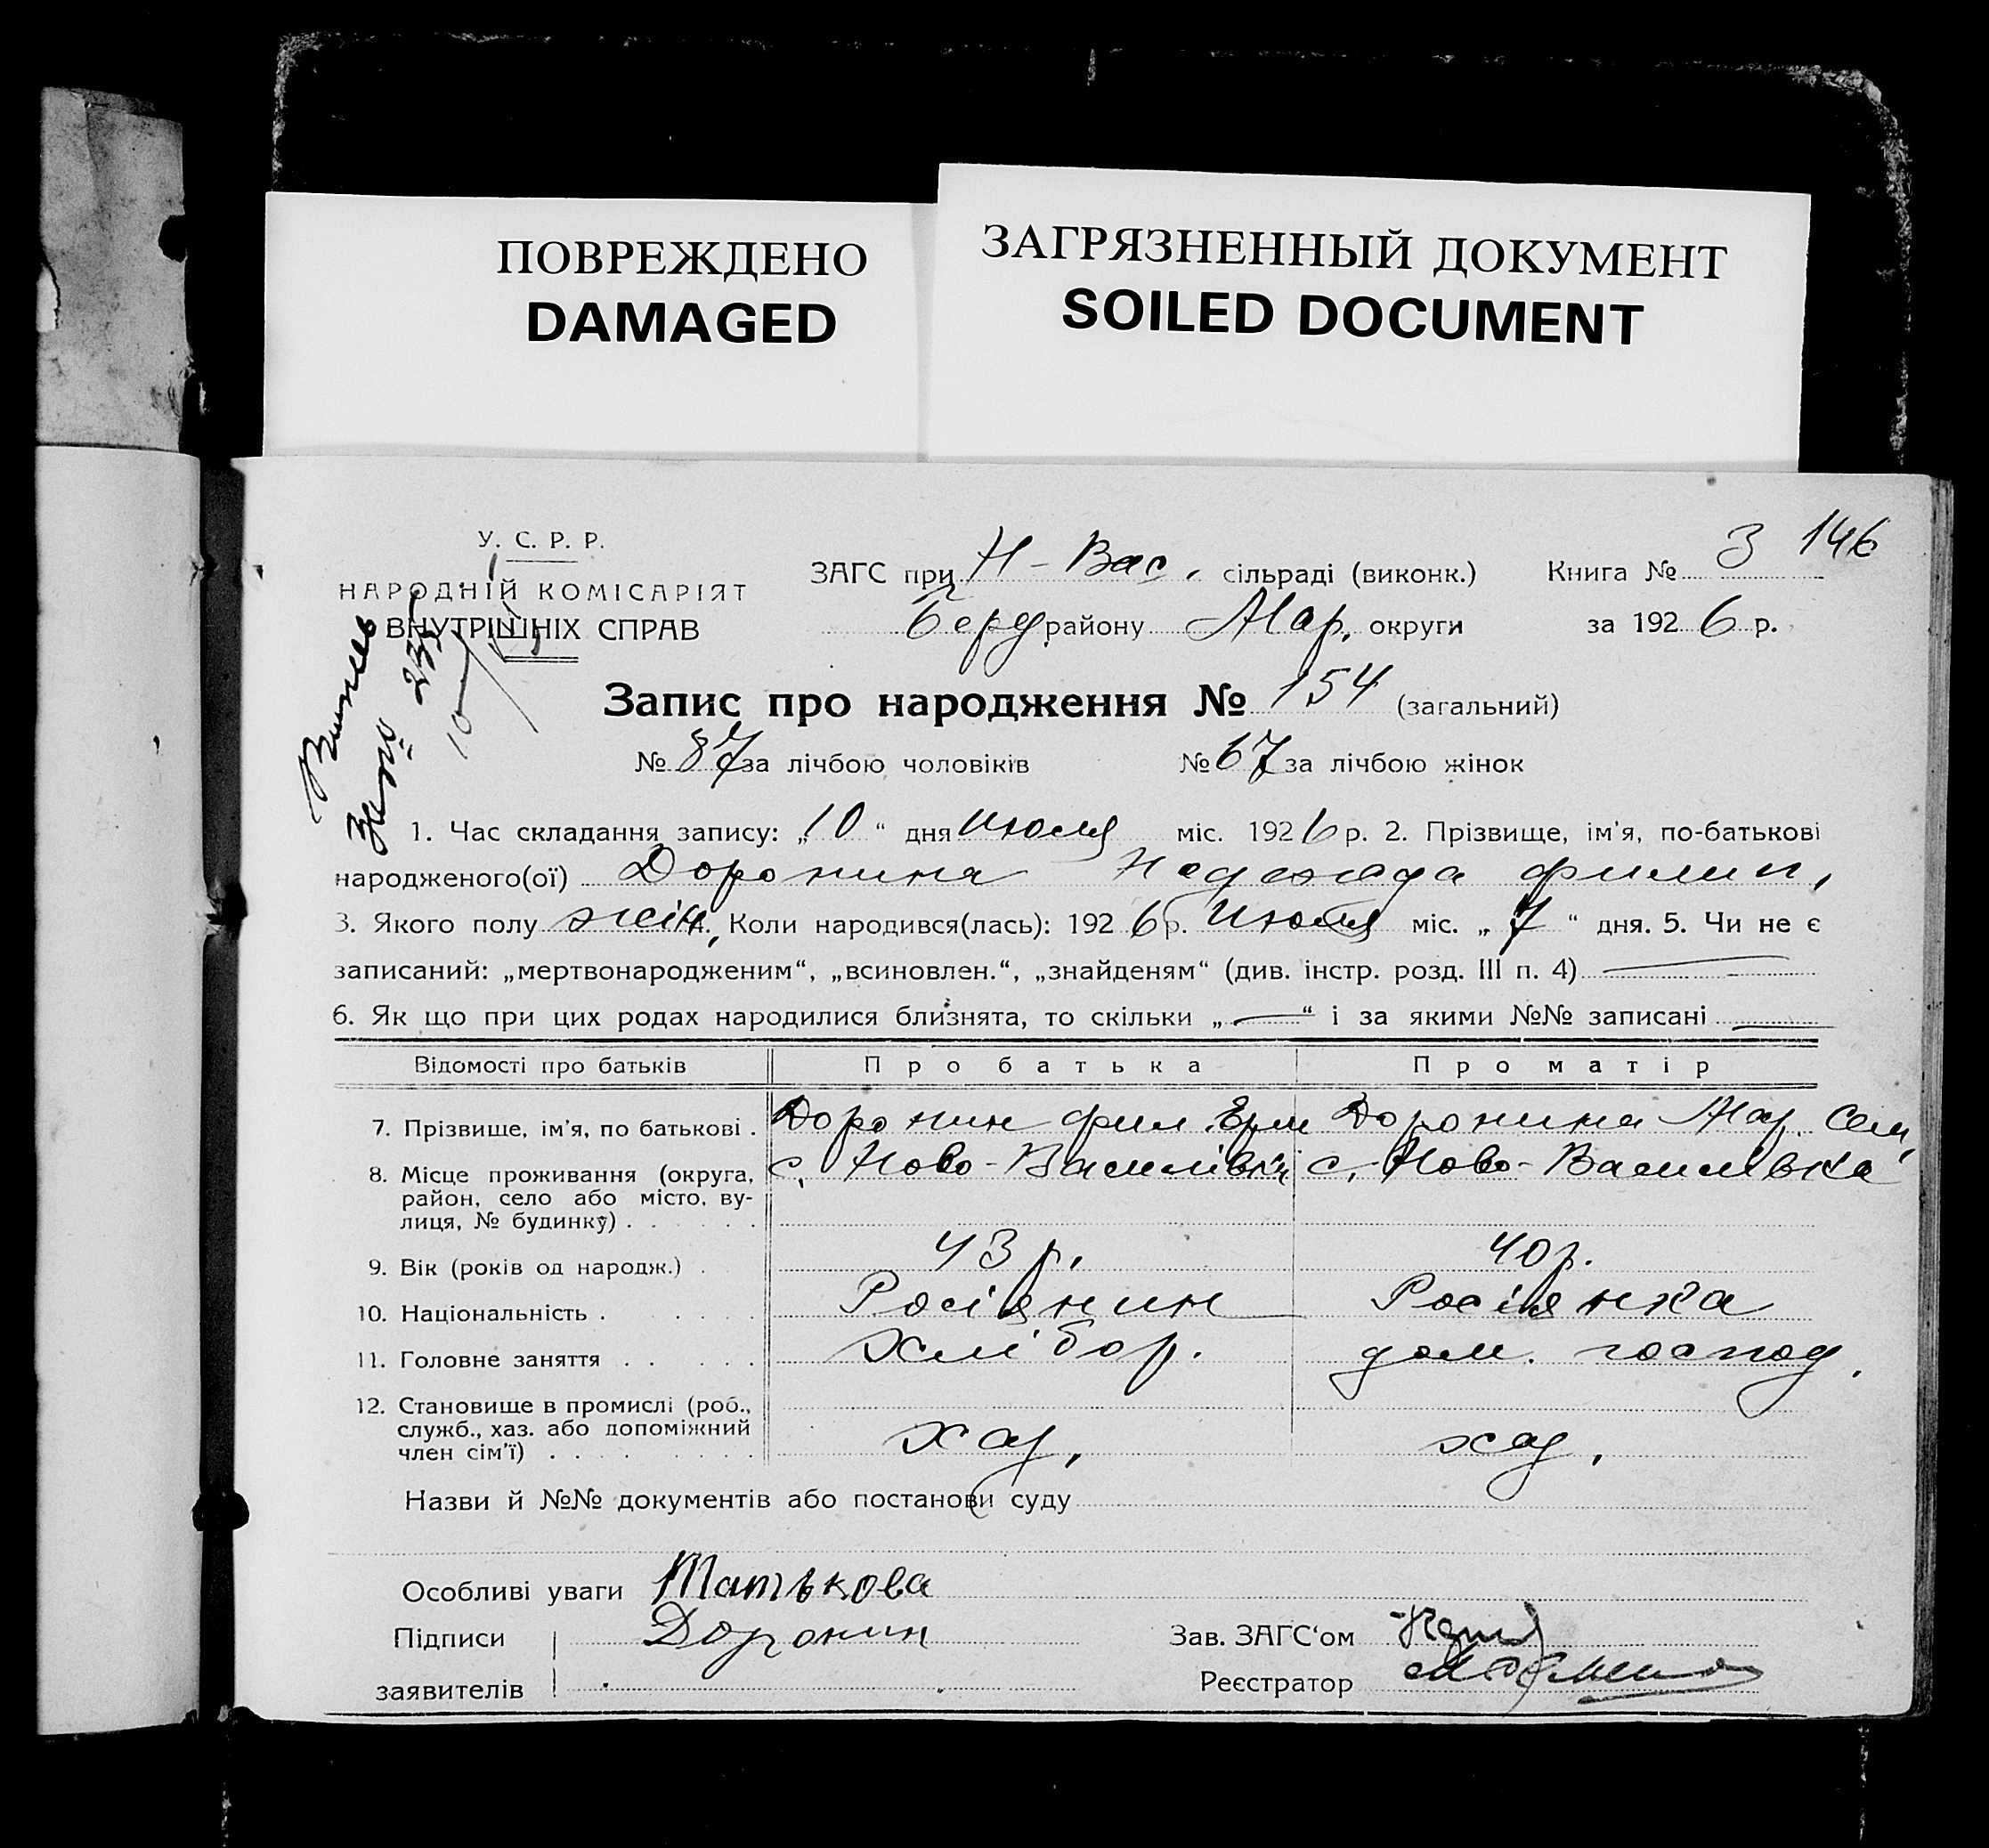 ПОВРЕЖДЕНО
DAMAGED
ЗАГРЯЗНЕННЫЙ ДОКУМЕНТ
SOILED DOCUMENT
У. С. Р. Р.
НАРОДНІЙ КОМІСАРІЯТ
ВНУТРІШНІХ СПРАВ
3 146
ЗАГС при Н-Вас. сільраді (виконк.) Книга №
Берд району Мар. округи за 1926 р.
Запис про народження № 154 (загальний)
№ 87 за лічбою чоловіків № 67 за лічбою жінок
1. Час складання запису: „10“ дня июля міс. 1926 р. 2. Прізвище, ім'я, по-батькові
народженого(ої) Доронина Надежда Филип,
3. Якого полу жін, Коли народився(лась): 1926 р. Июля міс. „7“ дня. 5. Чи не є
записаний: „мертвонародженим“, „всиновлен.“, „знайденям“ (див. інстр. розд. III п. 4) —
6. Як що при цих родах народилися близнята, то скільки „—“ і за якими №№ записані —
Відомості про батьків Про батька Про матір
7. Прізвище, ім'я, по батькові . Доронин Фил. Ерм Доронина Мар. Сем,
8. Місце проживання (округа, район, село або місто, вулиця, № будинку) . с. Ново-Василівка с. Ново-Василівка
9. Вік (років од народж.) . 43 р. 40 р.
10. Національність . Росіянин Росіянка
11. Головне заняття . хлібор. дом. господ.
12. Становище в промислі (роб., служб., хаз. або допоміжний член сім'ї) .
Назви й №№ документів або постанови суду
Особливі уваги Матькова
Підписи Доронин Зав. ЗАГС'ом
заявителів Реєстратор